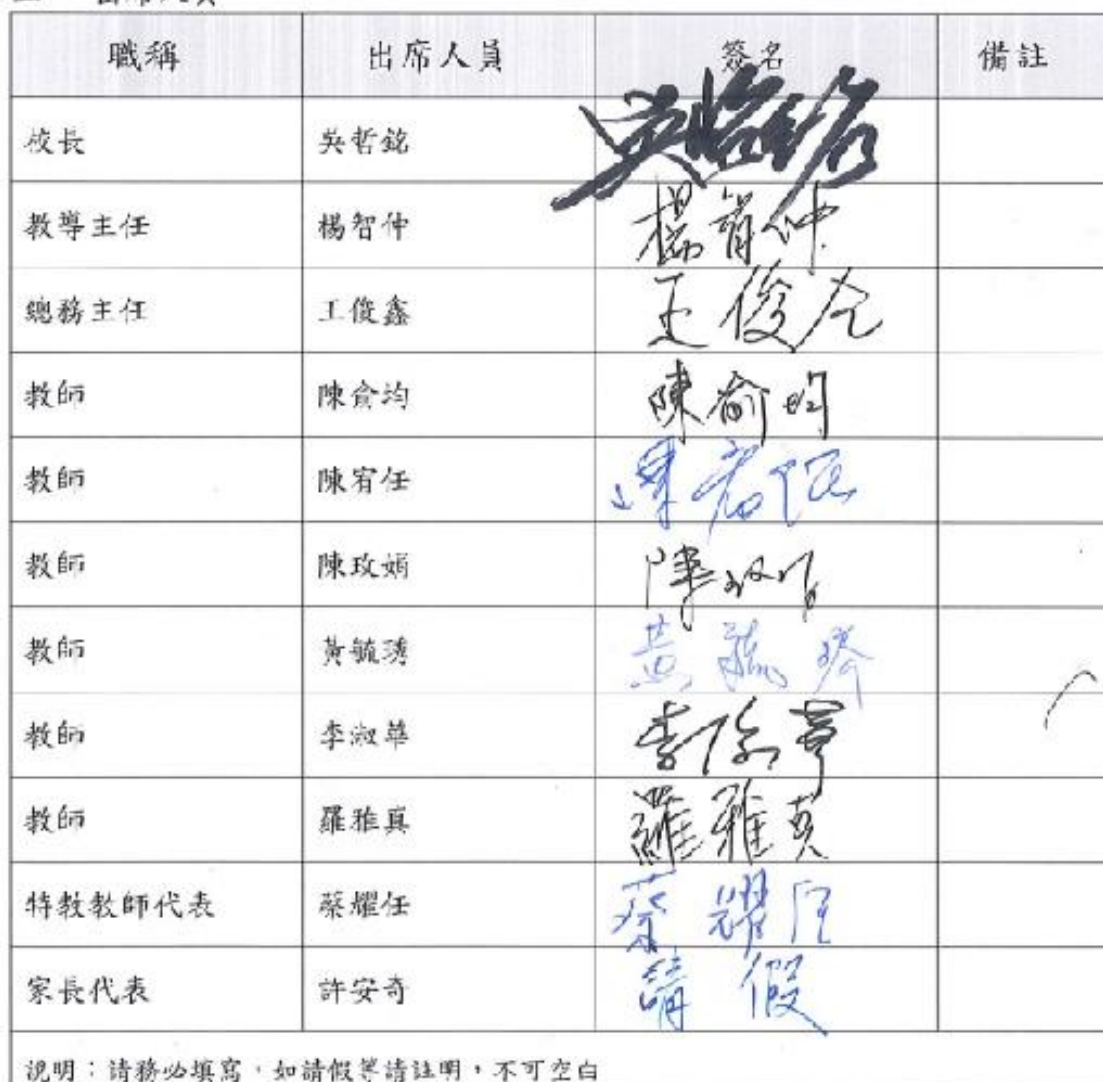 職稱 出席人員 簽名 備註
校長 吳哲銘
教導主任 楊智仲 楊智仲
總務主任 王俊鑫 王俊
教師 陳俞均 陳俞均
教師 陳宥任 陳宥任
教師 陳玫娟 陳玫娟
教師 黃毓琇 黃毓琇
教師 李淑華 李淑華
教師 羅雅真 羅雅真
特教教師代表 蔡耀任 蔡耀任
家長代表 許安奇 請假
說明：請務必填寫，如請假等請註明，不可空白